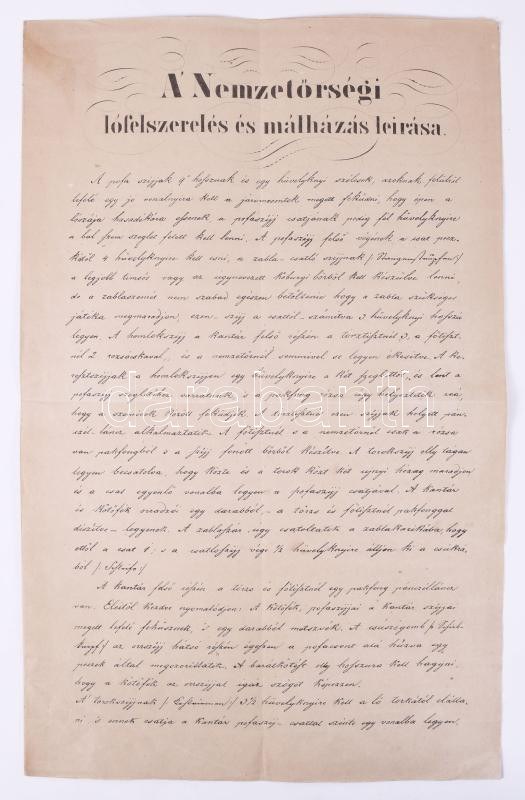 A Nemzetőrségi
lófelszerelés és málházás leirása.
A pofa szijjak 9" hosznak és egy hüvelyknyi szélesek, azoknak felülről
lefelé egy jó vonalnyira kell a járomcsontok megett feküdni, hogy épen a
szája hasadékára essenek a pofaszijj csatjának pedig fél hüvelyknyire
a bal szem szeglet felett kell lenni. A pofaszijj felső végének a csat
4 hüvelyknyire kell esni, a zabla-csatló szijjnak
a legjobb timsós vagy az ugynevezett bőrből kell készülve lenni,
de a zablaszemet nem szabad egészen betöltenie hogy a zabla szükséges
játéka megmaradjon, ezen szijj a csattól számitva 3 hüvelyknyi hosszu
legyen. A homlokszijj a kantár felső részén a törzstisztnél 3, a főtiszt-
nél 2 rozsáskával, és a nemzetőrnél semmivel se legyen ékesitve. A ke-
resztszijjak a homlokszijjon egy hüvelyknyire a két és lent a
pofaszij szegletéhez varratnak, a pakfong rózsa ugy helyeztetik reá,
hogy a szemek között feküdjék. A tisztnél ezen szijjak helyett pán-
czél láncz alkalmaztatik. A főtisztnél s a nemzetőrnél csak a rozsa
van pakfongból s a szijj fonott bőrből készülve. A torokszijj olly tágan
legyen becsatolva, hogy közte és a torok közt két ujnyi hézag maradjon
és a csat egyenlő vonalba legyen a pofaszijj csatjával. A kantár
és kötőfék orradzó egy darabból, a törzs és főtisztnél pakfonggal
diszitve legyenek. A zablaszár ugy csatoltatik a zablakarikába, hogy
ettől a csat 1, s a csatlószijj vége ½ hüvelyknyire álljon ki a csukra-
ból
A kantár felső részén a törzs és főtisztnél egy pakfong pánczélláncz
van. Eleitől kezdve nyomolódjon. A kötőfék, pofaszijjai a kantár szijjai
megett lefelé feküsznek, s egy darabból metszvék. A
az orrszijj hátsó részén egészen a pofacsont alá húzva egy
perecz által megszorittatik. A barátkötőt olly hoszura kell hagyni,
hogy a kötőfék az orrszijjal igaz szöget képezzen.
A torokszijjnak 3½ hüvelyknyire kell a ló torkától elálla-
ni, s ennek csatja a kantár pofaszij-csattal szinte egy vonalba legyen.
darabanth